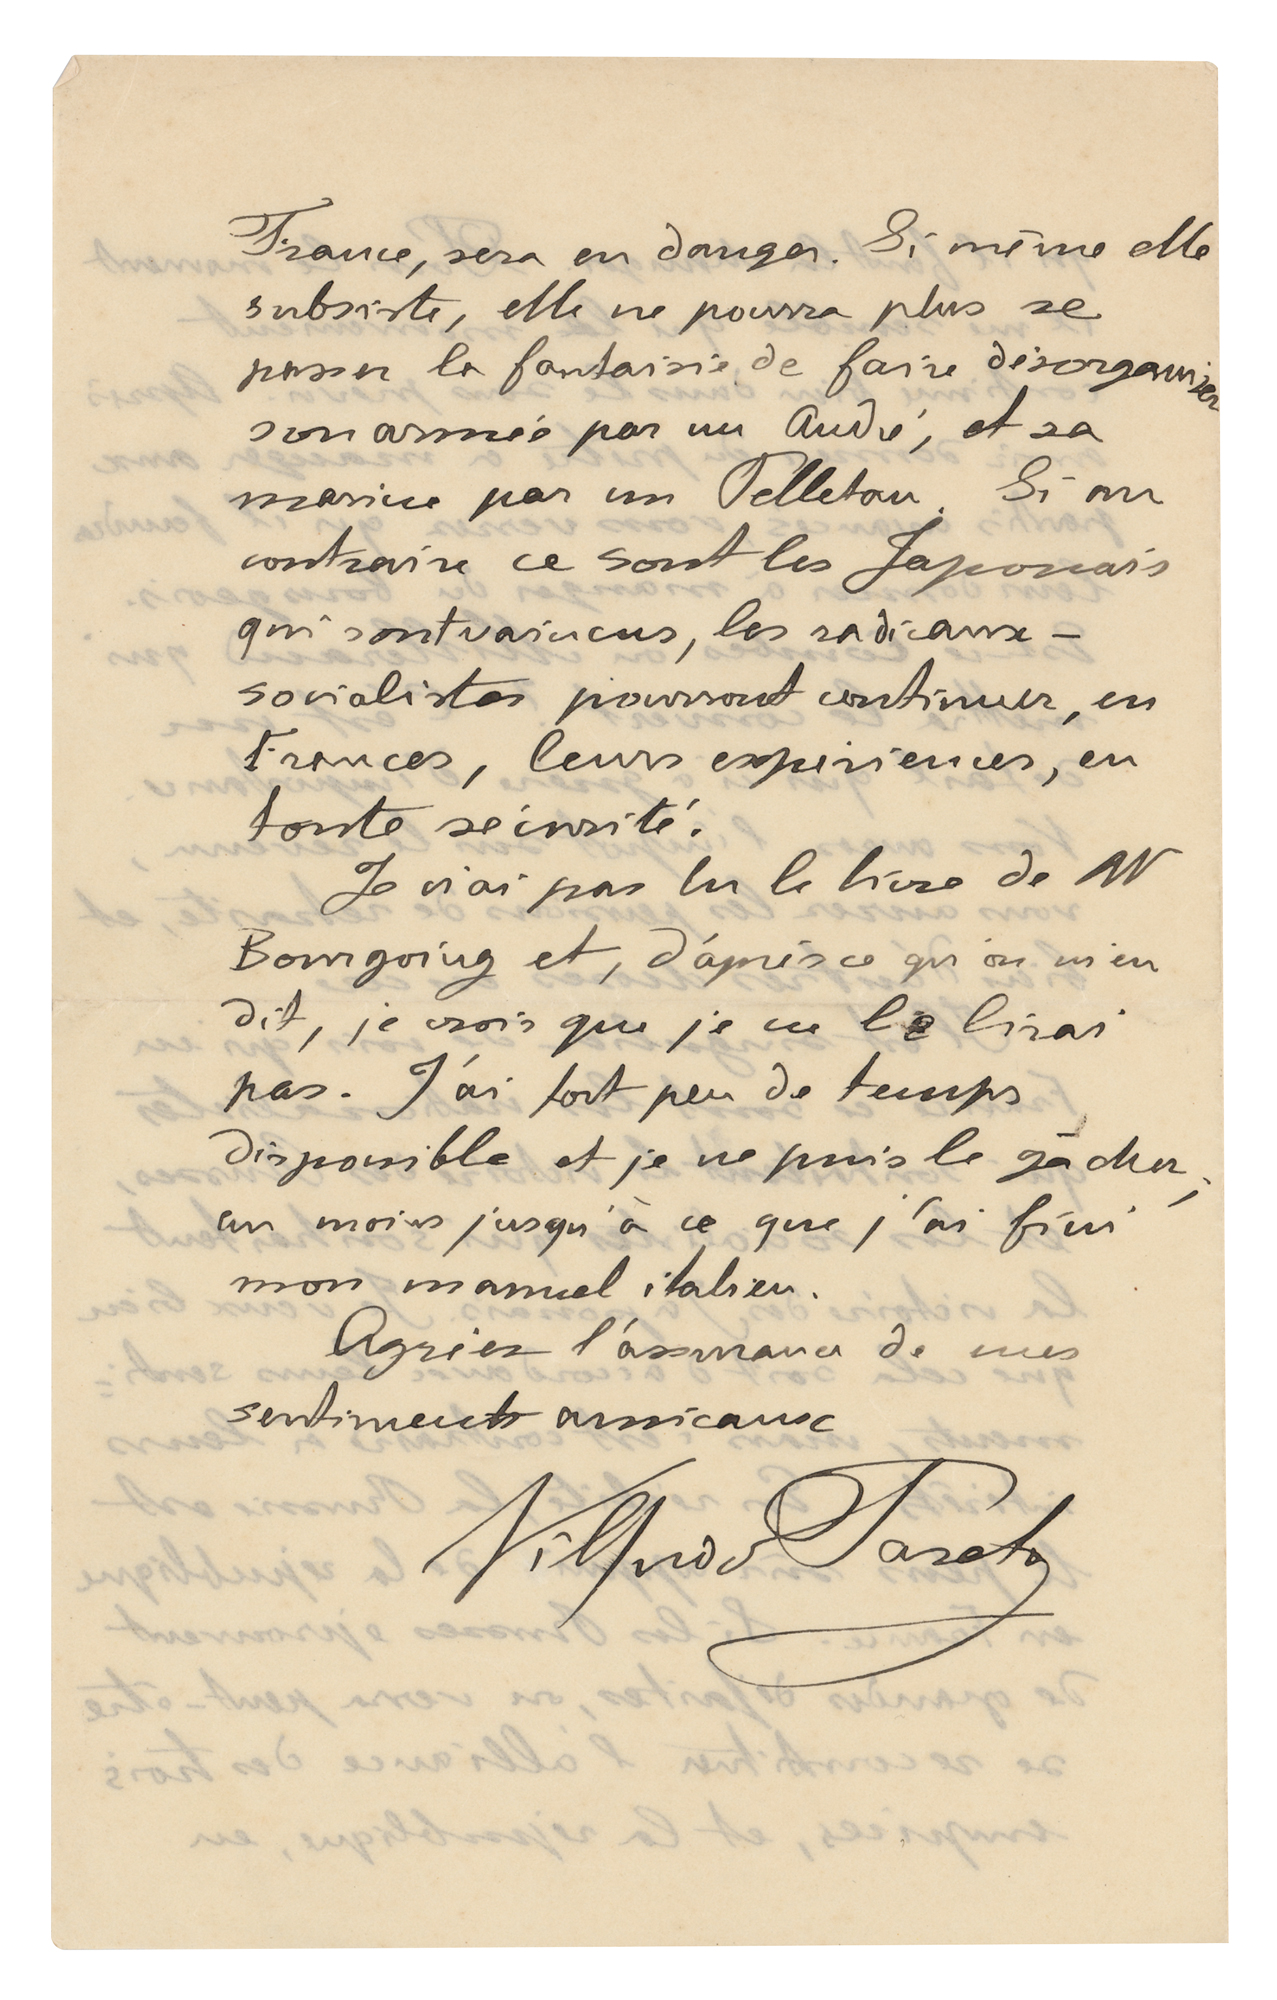 France, sera en danger. Si même elle
subsiste, elle ne pourra plus se
passer la fantaisie de faire désorganiser
son armée par un André, et sa
marine par un Pelletan. Si au
contraire ce sont les Japonais
qui sont vaincus, les radicaux-
socialistes pourront continuer, en
Frances, leurs expériences, en
toute sécurité.
Je n'ai pas lu le livre de Mr
Bourgoing et, d'après ce qu'on m'en
dit, je crois que je ne le lirai
pas. J'ai fort peu de temps
disponible et je ne puis le gâcher,
au moins jusqu'à ce que j'ai fini
mon manuel italien.
Agréez l'assurance de mes
sentiments amicaux
Vilfredo Pareto